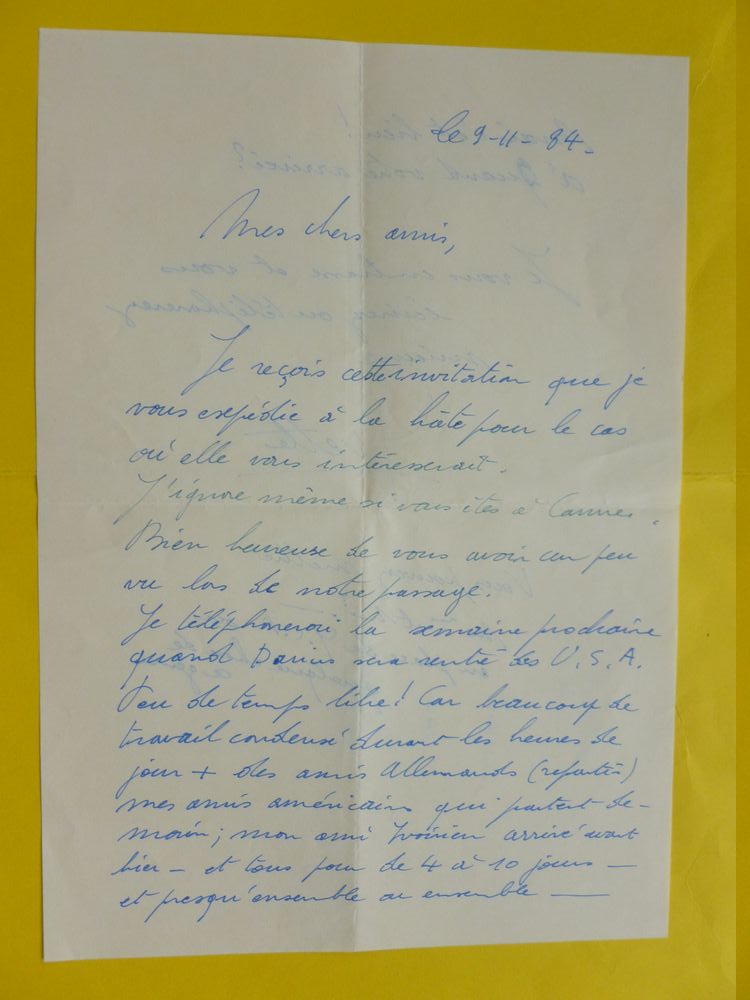 le 9-11-84-
Mes chers amis,
Je reçois cette invitation que je
vous expédie à la hâte pour le cas
où elle vous intéresserait.
J'ignore même si vous êtes à Cannes.
Bien heureuse de vous avoir un peu
vu lors de notre passage.
Je téléphonerai la semaine prochaine
quand Darius sera rentré des U.S.A.
Peu de temps libre! Car beaucoup de
travail condensé durant les heures de
jour + des amis Allemands (repartis)
mes amis américains qui partent de-
main; mon ami Ivoirien arrivé avant
hier - et tous pour de 4 à 10 jours -
et presqu'ensemble ou ensemble -